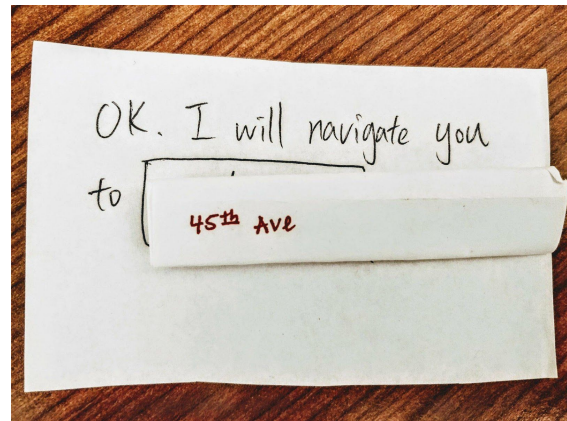 OK. I will navigate you
to
45th Ave